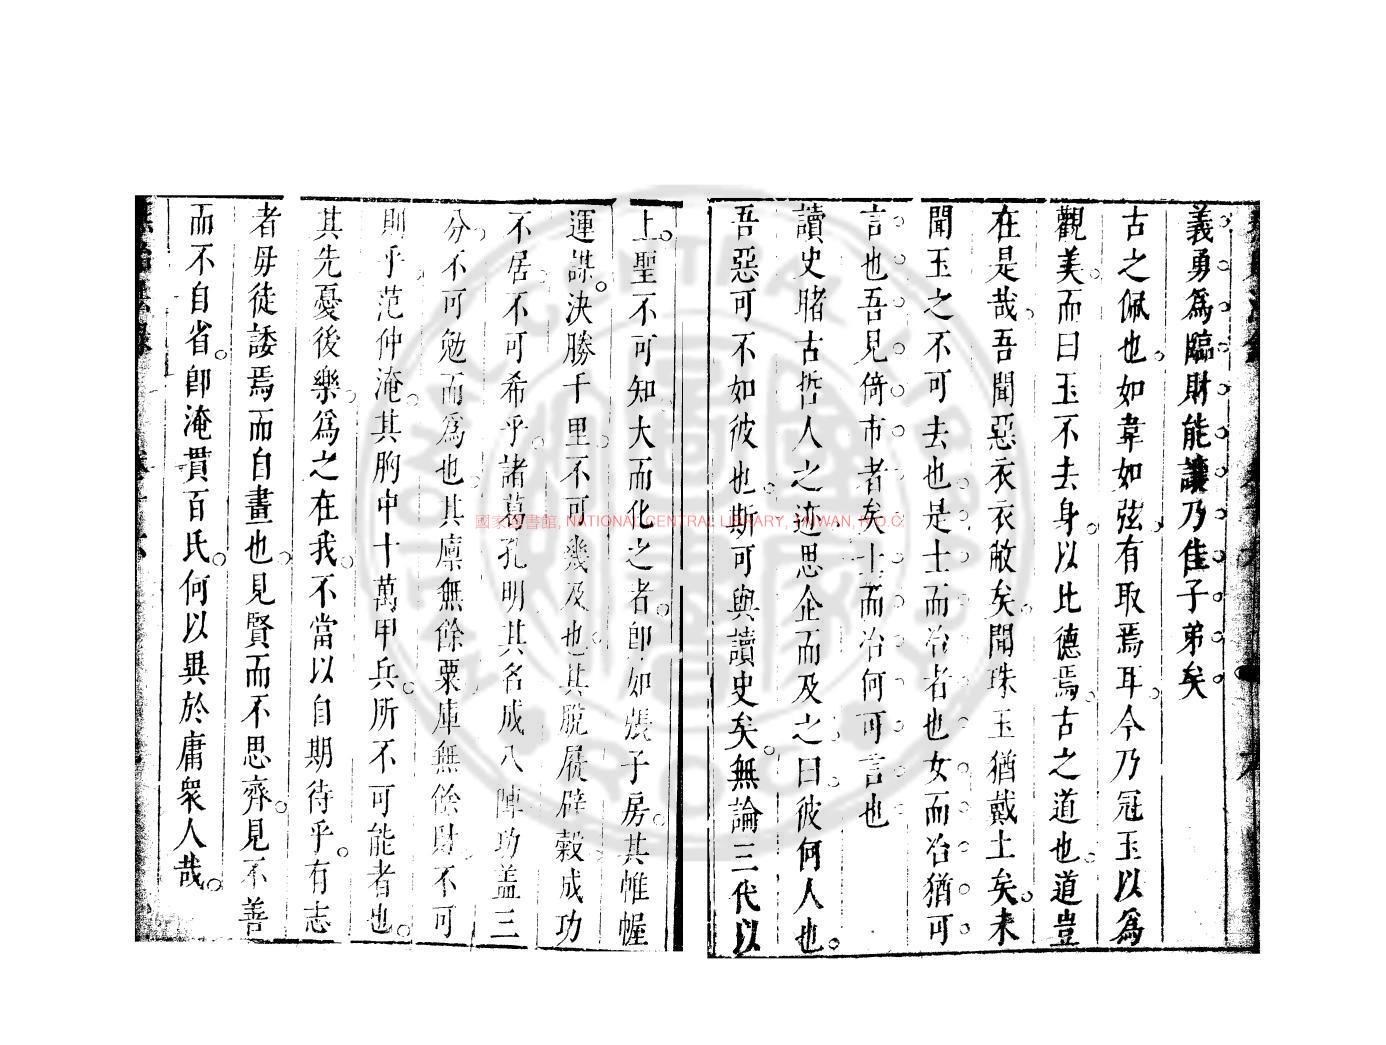 義勇爲臨財能讓乃佳子弟矣
古之佩也如韋如弦有取焉耳今乃冠玉以爲
觀美而曰玉不去身以比德焉古之道也道豈
在是哉吾聞惡衣衣敝矣聞珠玉猶戴土矣未
聞玉之不可去也是士而冶者也女而冶猶可
言也吾見倚市者矣士而冶何可言也
讀史睹古哲人之迹思企而及之曰彼何人也
吾惡可不如彼也斯可與讀史矣無論三代以
上聖不可知大而化之者卽如張子房其帷幄
運謀決勝千里不可幾及也其脫屣辟穀成功
不居不可希乎諸葛孔明其名成八陣功盖三
分不可勉而爲也其廪無餘粟庫無餘財不可
則乎范仲淹其胸中十萬甲兵所不可能者也
其先憂後樂爲之在我不當以自期待乎有志
者毋徒諉焉而自畫也見賢而不思齊見不善
而不自省卽淹貫百氏何以異於庸衆人哉
國家圖書館, NATIONAL CENTRAL LIBRARY, TAIWAN, R.O.C